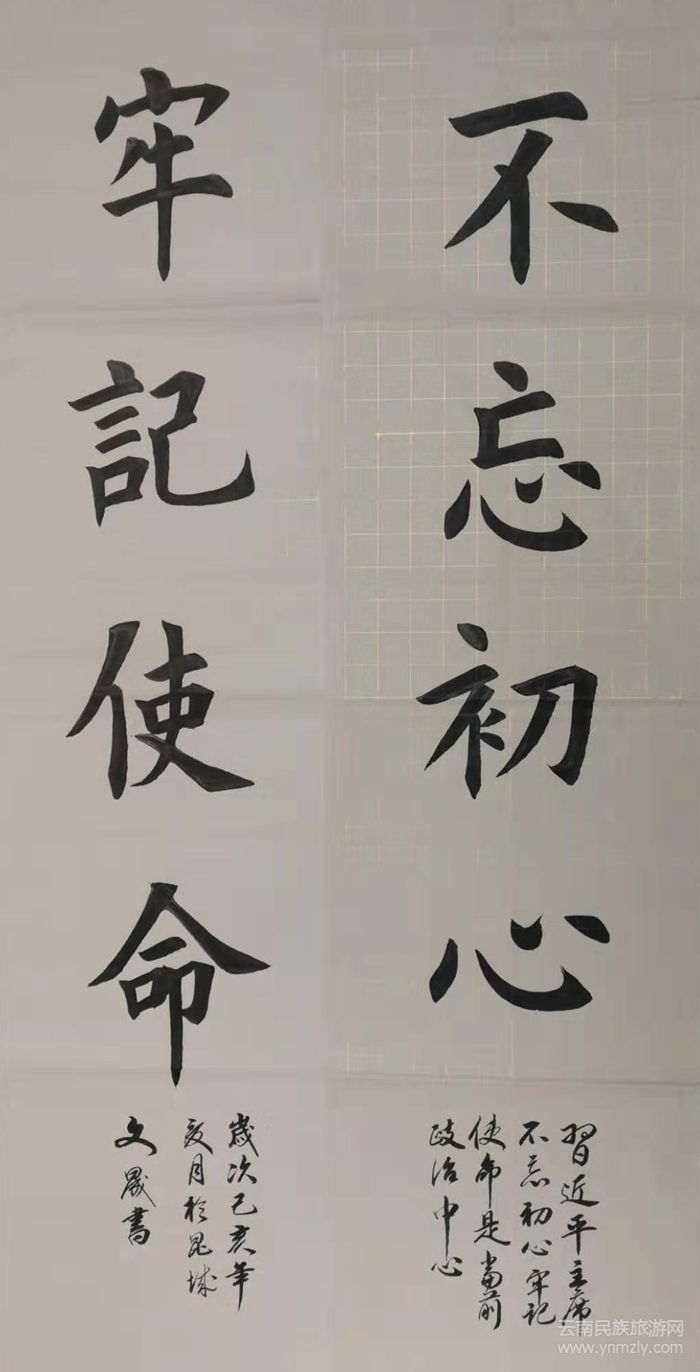 不忘初心
習近平主席
不忘初心牢記
使命是當前
政治中心
牢記使命
歲次己亥年
亥月於昆城
文晟書
云南民族旅游网
www.ynmzly.com